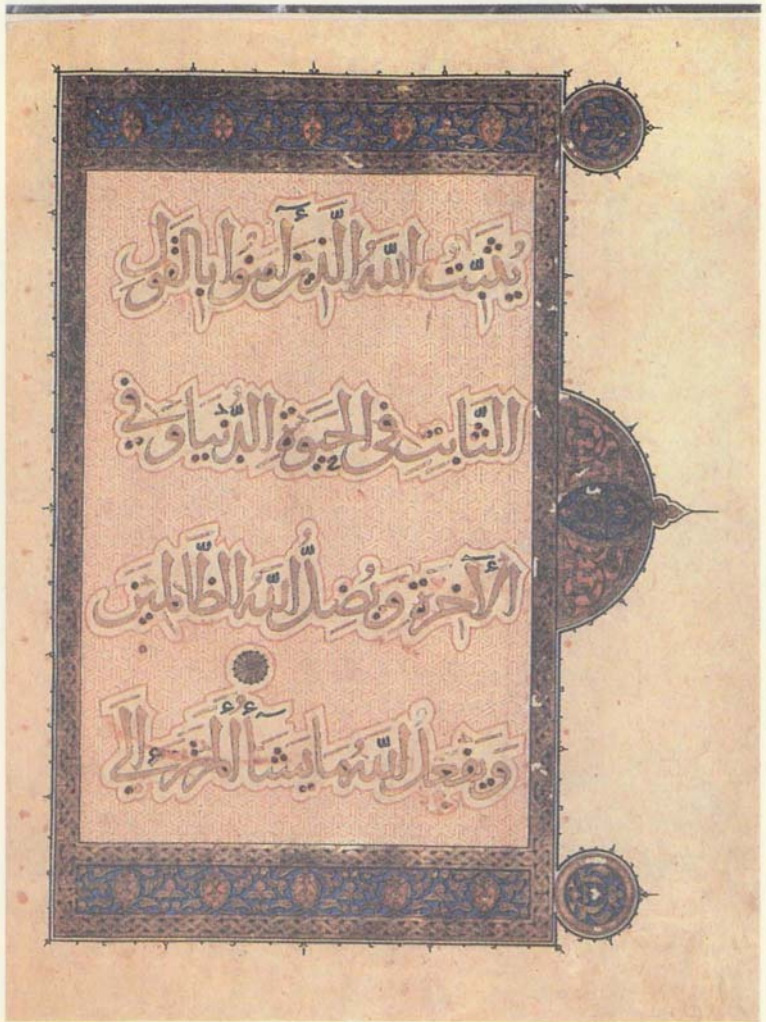 يُثَبِّتُ اللَّهُ الَّذِينَ آمَنُوا بِالْقَوْلِ
الثَّابِتِ فِي الْحَيَوةِ الدُّنْيَا وَفِي
الْآخِرَةِ وَيُضِلُّ اللَّهُ الظَّالِمِينَ
وَيَفْعَلُ اللَّهُ مَا يَشَاءُ أَلَمْ تَرَ إِلَى